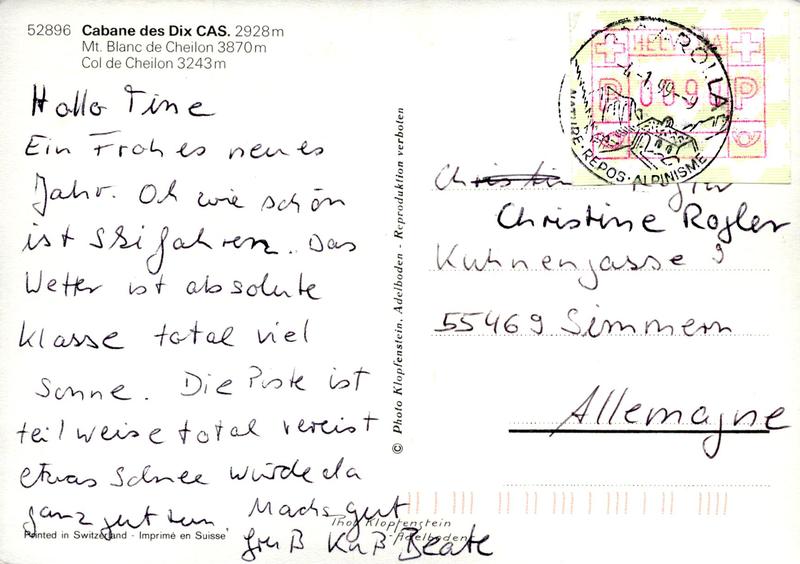 52896 Cabane des Dix CAS. 2928m
Mt. Blanc de Cheilon 3870m
Col de Cheilon 3243m
Hallo Tine
Ein Frohes neues
Jahr. Oh wie schön
ist Skifahren. Das
Wetter ist absolute
klasse total viel
Sonne. Die Piste ist
teilweise total vereist
etwas Schnee würde da
ganz gut tun. Machs gut
Gruß Kuß Beate
Printed in Switzerland - Imprimé en Suisse
© Photo Klopfenstein, Adelboden - Reproduktion verboten
Thos Klopfenstein
Adelboden
HELVETIA
P 0090 P
AROLLA
-4-1.99--9
NATURE · REPOS · ALPINISME
Christin
Christine Rogler
Kuhnengasse 9
55469 Simmern
Allemagne